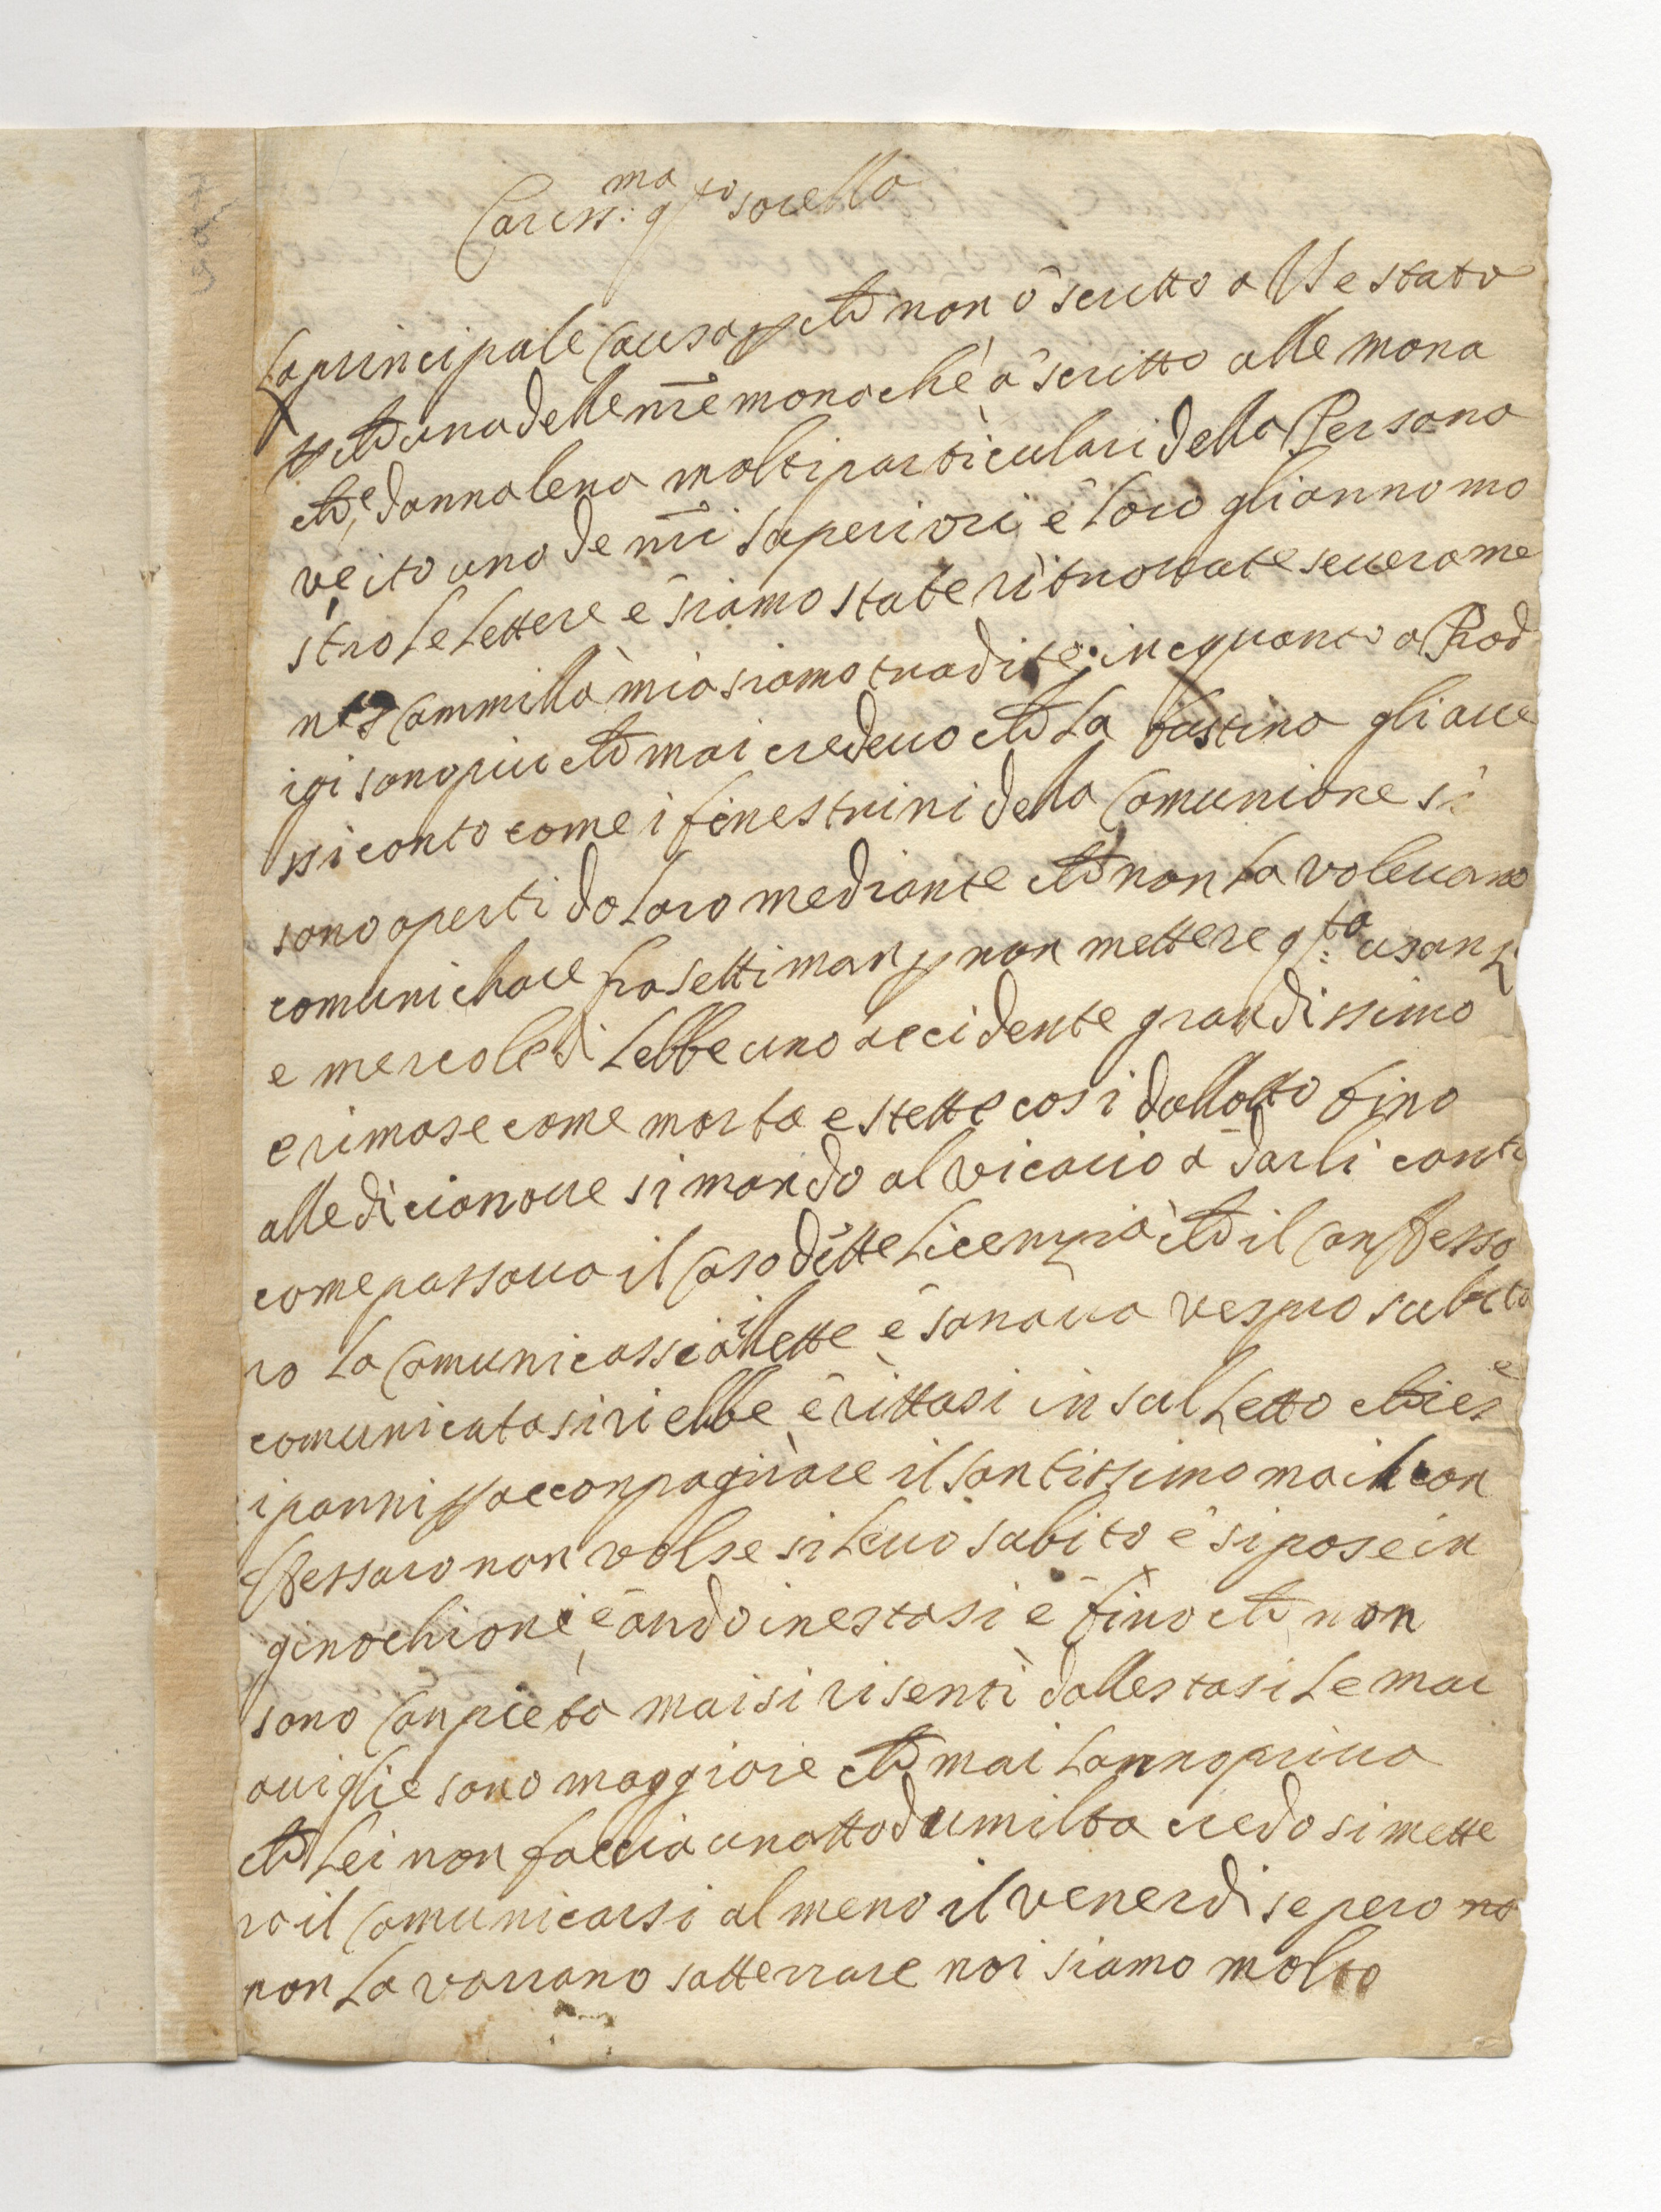 Cariss:ma q:ta sorella
La principale causa p che non ò scritto a V e stato
p che una delle nre monache à scritto alle mona
che, d annalena molti particulari della Persona
ve ito uno de nri superiori e loro gli anno mo
stro le lettere e siamo state ritrovate severame
nte cammilla mia siamo tradite: in quanto a Prod
igi sono piu che mai credevo che la faustina gli ave
ssi conto come i finestrini della comunione si
sono aperti da loro mediante che non la volevano
comunichare fra settiman p non mettere q:ta usanz
e mercoledi lebbe uno accidente grandissimo
e rimase come morta e stette cosi dallotto fino
alle dicianove si mando al vicario a darli conto
come passava il caso dette licenzia che il confesso
ro la comunicassi allette e sonava vespro subito
comunicata si riebbe e rittasi in sul letto chiese
i panni p acconpagnare il santissimo ma il con
fessaro non volse si levo subito e si pose in
ginochione e ando in estasi e fino che non
sono conpieta mai si risenti dallestasi le mar
aviglie sono maggiore che mai lanno priva
che lei non faccia un atto dumilta credo si mette
ra il comunicarsi al meno il venerdi se pero no
non la vorrano sotterrare noi siamo molto